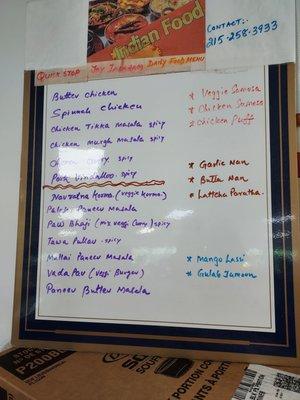 Indian Food
CONTACT:-
215-258-3933
QUICK STOP Jay Daily Food MENU
Butter Chicken
Spinach chicken
Chicken Tikka Masala spicy
Chicken Murgh Masala spicy
Curry. spicy
Pork Vindalloo. spicy
Navratna Korma (veggie korma)
Palak Paneer Masala
Paw Bhaji (mix veggi Curry) spicy
Tawa Pullav - spicy
Muttai Paneer Masala
Vada Pav (veggi Burger)
Paneer Butter Masala
* Veggie Samosa
* Chicken Samosa
* Chicken Puff
* Garlic Nan
* Butter Nan
* Lattcha Paratha.
* Mango Lassi
* Gulab Jamoon